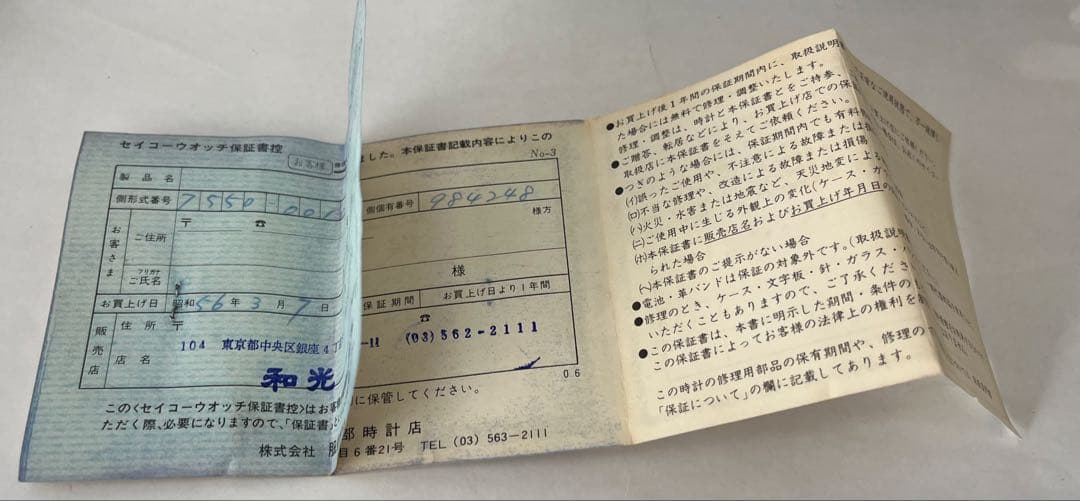 セイコーウオッチ保証書控
お客様
製品名
側形式番号 7550-001
お客さま
〒 ☎
ご住所
フリガナ
ご氏名
お買上げ日 昭和56年3月7日
販売店
住所 〒
104 東京都中央区銀座4丁
店名
和光
この〈セイコーウオッチ保証書控〉はお客
ただく際、必要になりますので、「保証書」
株式会社 服
ました。本保証書記載内容によりこの
No-3
側個有番号 984248
様方
様
保証期間 お買上げ日より1年間
☎
-11 (03)562-2111
06
に保管してください。
部時計店
目6番21号 TEL (03) 563-2111
●お買上げ後1年間の保証期間内に、取扱説明
た場合には無料で修理・調整いたします。
修理・調整は、時計と本保証書とをご持参、
●ご贈答、転居などにより、お買上げ店での保
取扱店に本保証書をそえてご依頼ください。
●つぎのような場合には、保証期間内でも有料
(イ)誤ったご使用や、不注意による故障または損
(ロ)不当な修理や、改造による故障または損傷
(ハ)火災・水害または地震など、天災地変による
(ニ)ご使用中に生じる外観上の変化(ケース・ガ
(ホ)本保証書に販売店名およびお買上げ年月日の
られた場合
(ヘ)本保証書のご提示がない場合
●電池・革バンドは保証の対象外です。(取扱説明
●修理のとき、ケース・文字板・針・ガラス・バ
いただくこともありますので、ご了承くださ
●この保証書は、本書に明示した期間・条件のも
●この保証書によってお客様の法律上の権利を
この時計の修理用部品の保有期間や、修理の
「保証について」の欄に記載してあります。